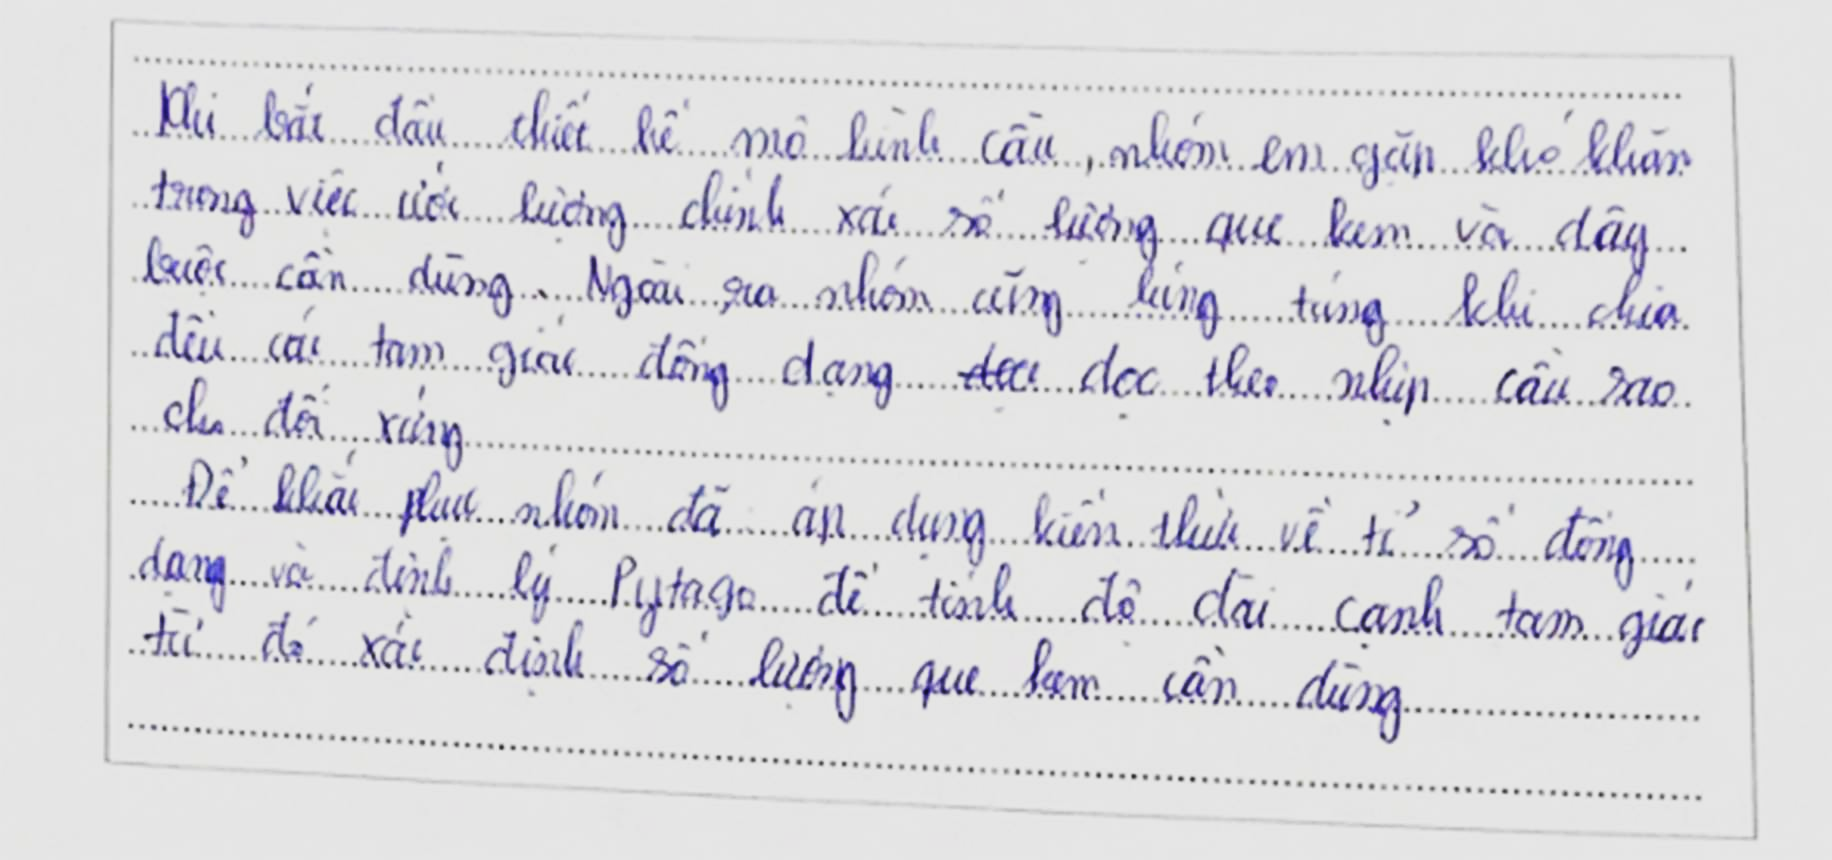 Khi bắt đầu thiết kế mô hình cầu, nhóm em gặp khó khăn
trong việc ước lượng chính xác số lượng que kem và dây
buộc cần dùng. Ngoài ra nhóm cũng lúng túng khi chia
đều các tam giác đồng dạng dọc dọc theo nhịp cầu sao
cho đối xứng
Để khắc phục nhóm đã áp dụng kiến thức về tỉ số đồng
dạng và định lý Pytago để tính độ dài cạnh tam giác
từ đó xác định số lượng que kem cần dùng